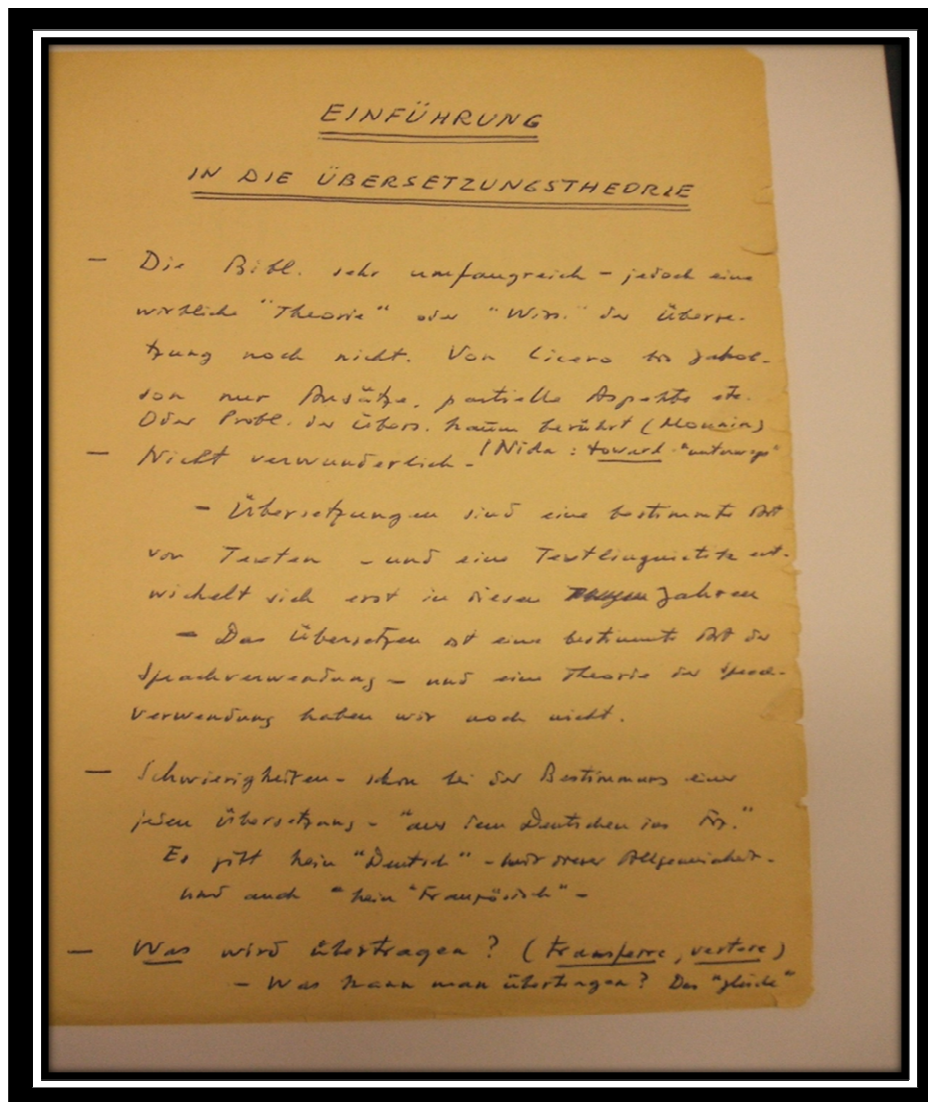 EINFÜHRUNG
IN DIE ÜBERSETZUNGSTHEORIE
— Die Bibl. sehr umfangreich – jedoch eine
wirkliche "Theorie" oder "Wiss." der Überse-
tzung noch nicht. Von Cicero bis Jakob-
son nur Ansätze, partielle Aspekte etc.
Oder Probl. der Übers. kaum berührt (Mounin)
— Nicht verwunderlich – / Nida : toward "unterwegs"
– Übersetzungen sind eine bestimmte Art
von Texten – und eine Textlinguistik ent-
wickelt sich erst in diesen Jahren
– Das Übersetzen ist eine bestimmte Art der
Sprachverwendung – und eine Theorie der Sprach-
verwendung haben wir noch nicht.
— Schwierigkeiten – schon bei der Bestimmung einer
jeden Übersetzung – "aus dem Deutschen ins Frz."
Es gibt kein "Deutsch" – mit dieser Allgemeinheit –
und auch "kein "Französisch" –
— Was wird übertragen? (transferre, vertere)
– Was kann man übertragen? Das "gleiche"